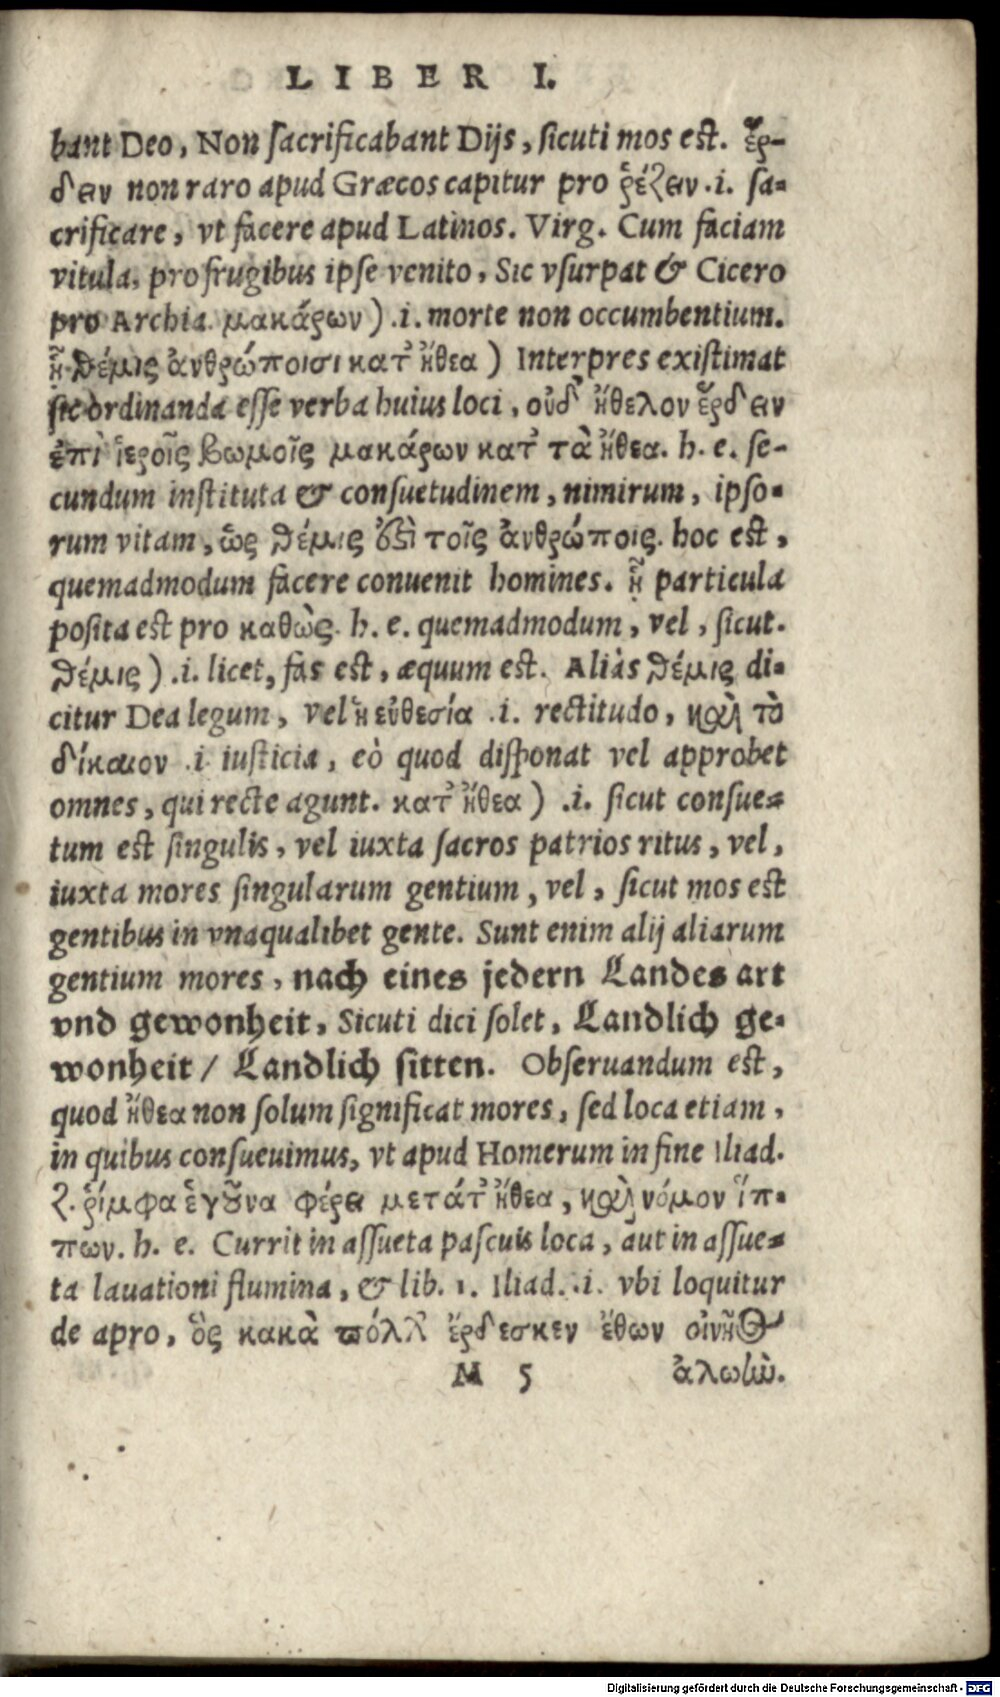 LIBER I.
bant Deo, Non sacrificabant Dijs, sicuti mos est. ἔρ-
δειν non raro apud Græcos capitur pro ῥέζειν .i. sa-
crificare, vt facere apud Latinos. Virg. Cum faciam
vitula, pro frugibus ipse venito, Sic vsurpat & Cicero
pro Archia. μακάρων) .i. morte non occumbentium.
ᾗ θέμις ἀνθρώποισι κατ' ἤθεα) Interpres existimat
sic ordinanda esse verba huius loci, οὐδ' ἤθελον ἔρδειν
ἐπὶ ἱεροῖς βωμοῖς μακάρων κατ' τὰ ἤθεα. h. e. se-
cundum instituta & consuetudinem, nimirum, ipso-
rum vitam, ὣς θέμις ἐστὶ τοῖς ἀνθρώποις. hoc est,
quemadmodum facere conuenit homines. ᾗ particula
posita est pro καθὼς. h. e. quemadmodum, vel, sicut.
θέμις) .i. licet, fas est, æquum est. Aliàs θέμις di-
citur Dea legum, vel ἡ εὐθεσία .i. rectitudo, καὶ τὸ
δίκαιον .i. iusticia, eò quod disponat vel approbet
omnes, qui recte agunt. κατ' ἤθεα) .i. sicut consue-
tum est singulis, vel iuxta sacros patrios ritus, vel,
iuxta mores singularum gentium, vel, sicut mos est
gentibus in vnaqualibet gente. Sunt enim alij aliarum
gentium mores, nach eines jedern Landes art
vnd gewonheit, Sicuti dici solet, Landlich ge-
wonheit / Landlich sitten. Obseruandum est,
quod ἤθεα non solum significat mores, sed loca etiam,
in quibus consueuimus, vt apud Homerum in fine Iliad.
ζ. ῥίμφα ἑ γοῦνα φέρει μετάτ' ἤθεα, καὶ νόμον ἵπ-
πων. h. e. Currit in assueta pascuis loca, aut in assue-
ta lauationi flumina, & lib. 1. Iliad. .i. vbi loquitur
de apro, ὃς κακὰ πόλλ' ἔρδεσκεν ἔθων οἰνῆος
M 5 ἀλωὴν.
Digitalisierung gefördert durch die Deutsche Forschungsgemeinschaft - DFG